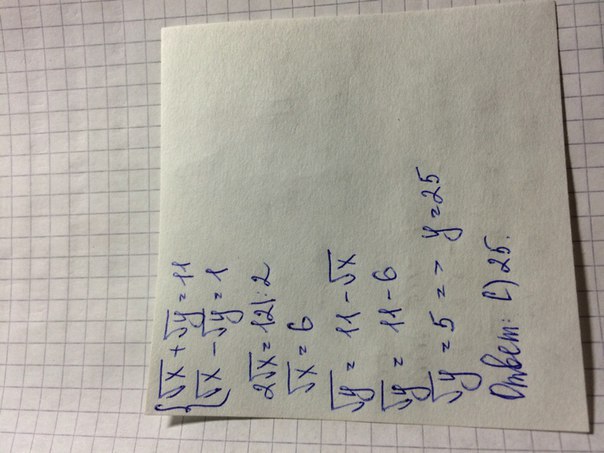 {√x + √y = 11
√x - √y = 1
2√x = 12 | : 2
√x = 6
√y = 11 - √x
√y = 11 - 6
√y = 5 = > y = 25
Ответ: C) 25.